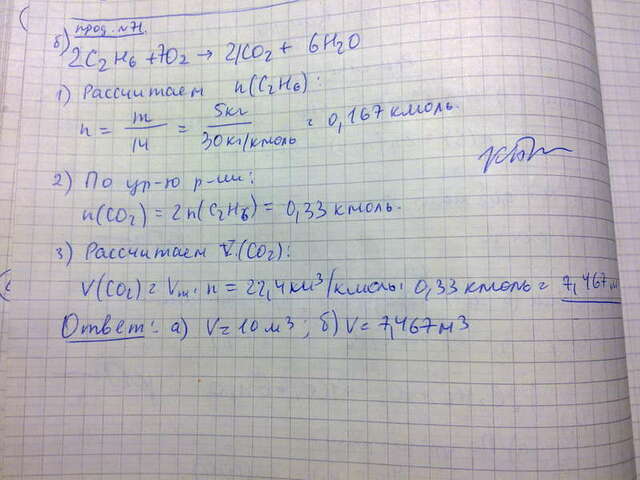 прод. №71.
б) 2C2H6 + 7O2 → 4CO2 + 6H2O
1) Рассчитаем n(C2H6):
n = m/M = 5кг/30кг/кмоль = 0,167 кмоль.
2) По ур-ю р-ии:
n(CO2) = 2n(C2H6) = 0,33 кмоль.
3) Рассчитаем V(CO2):
V(CO2) = Vm · n = 22,4 м3/кмоль · 0,33 кмоль = 7,467 м
Ответ: а) V = 10 м3; б) V = 7,467 м3